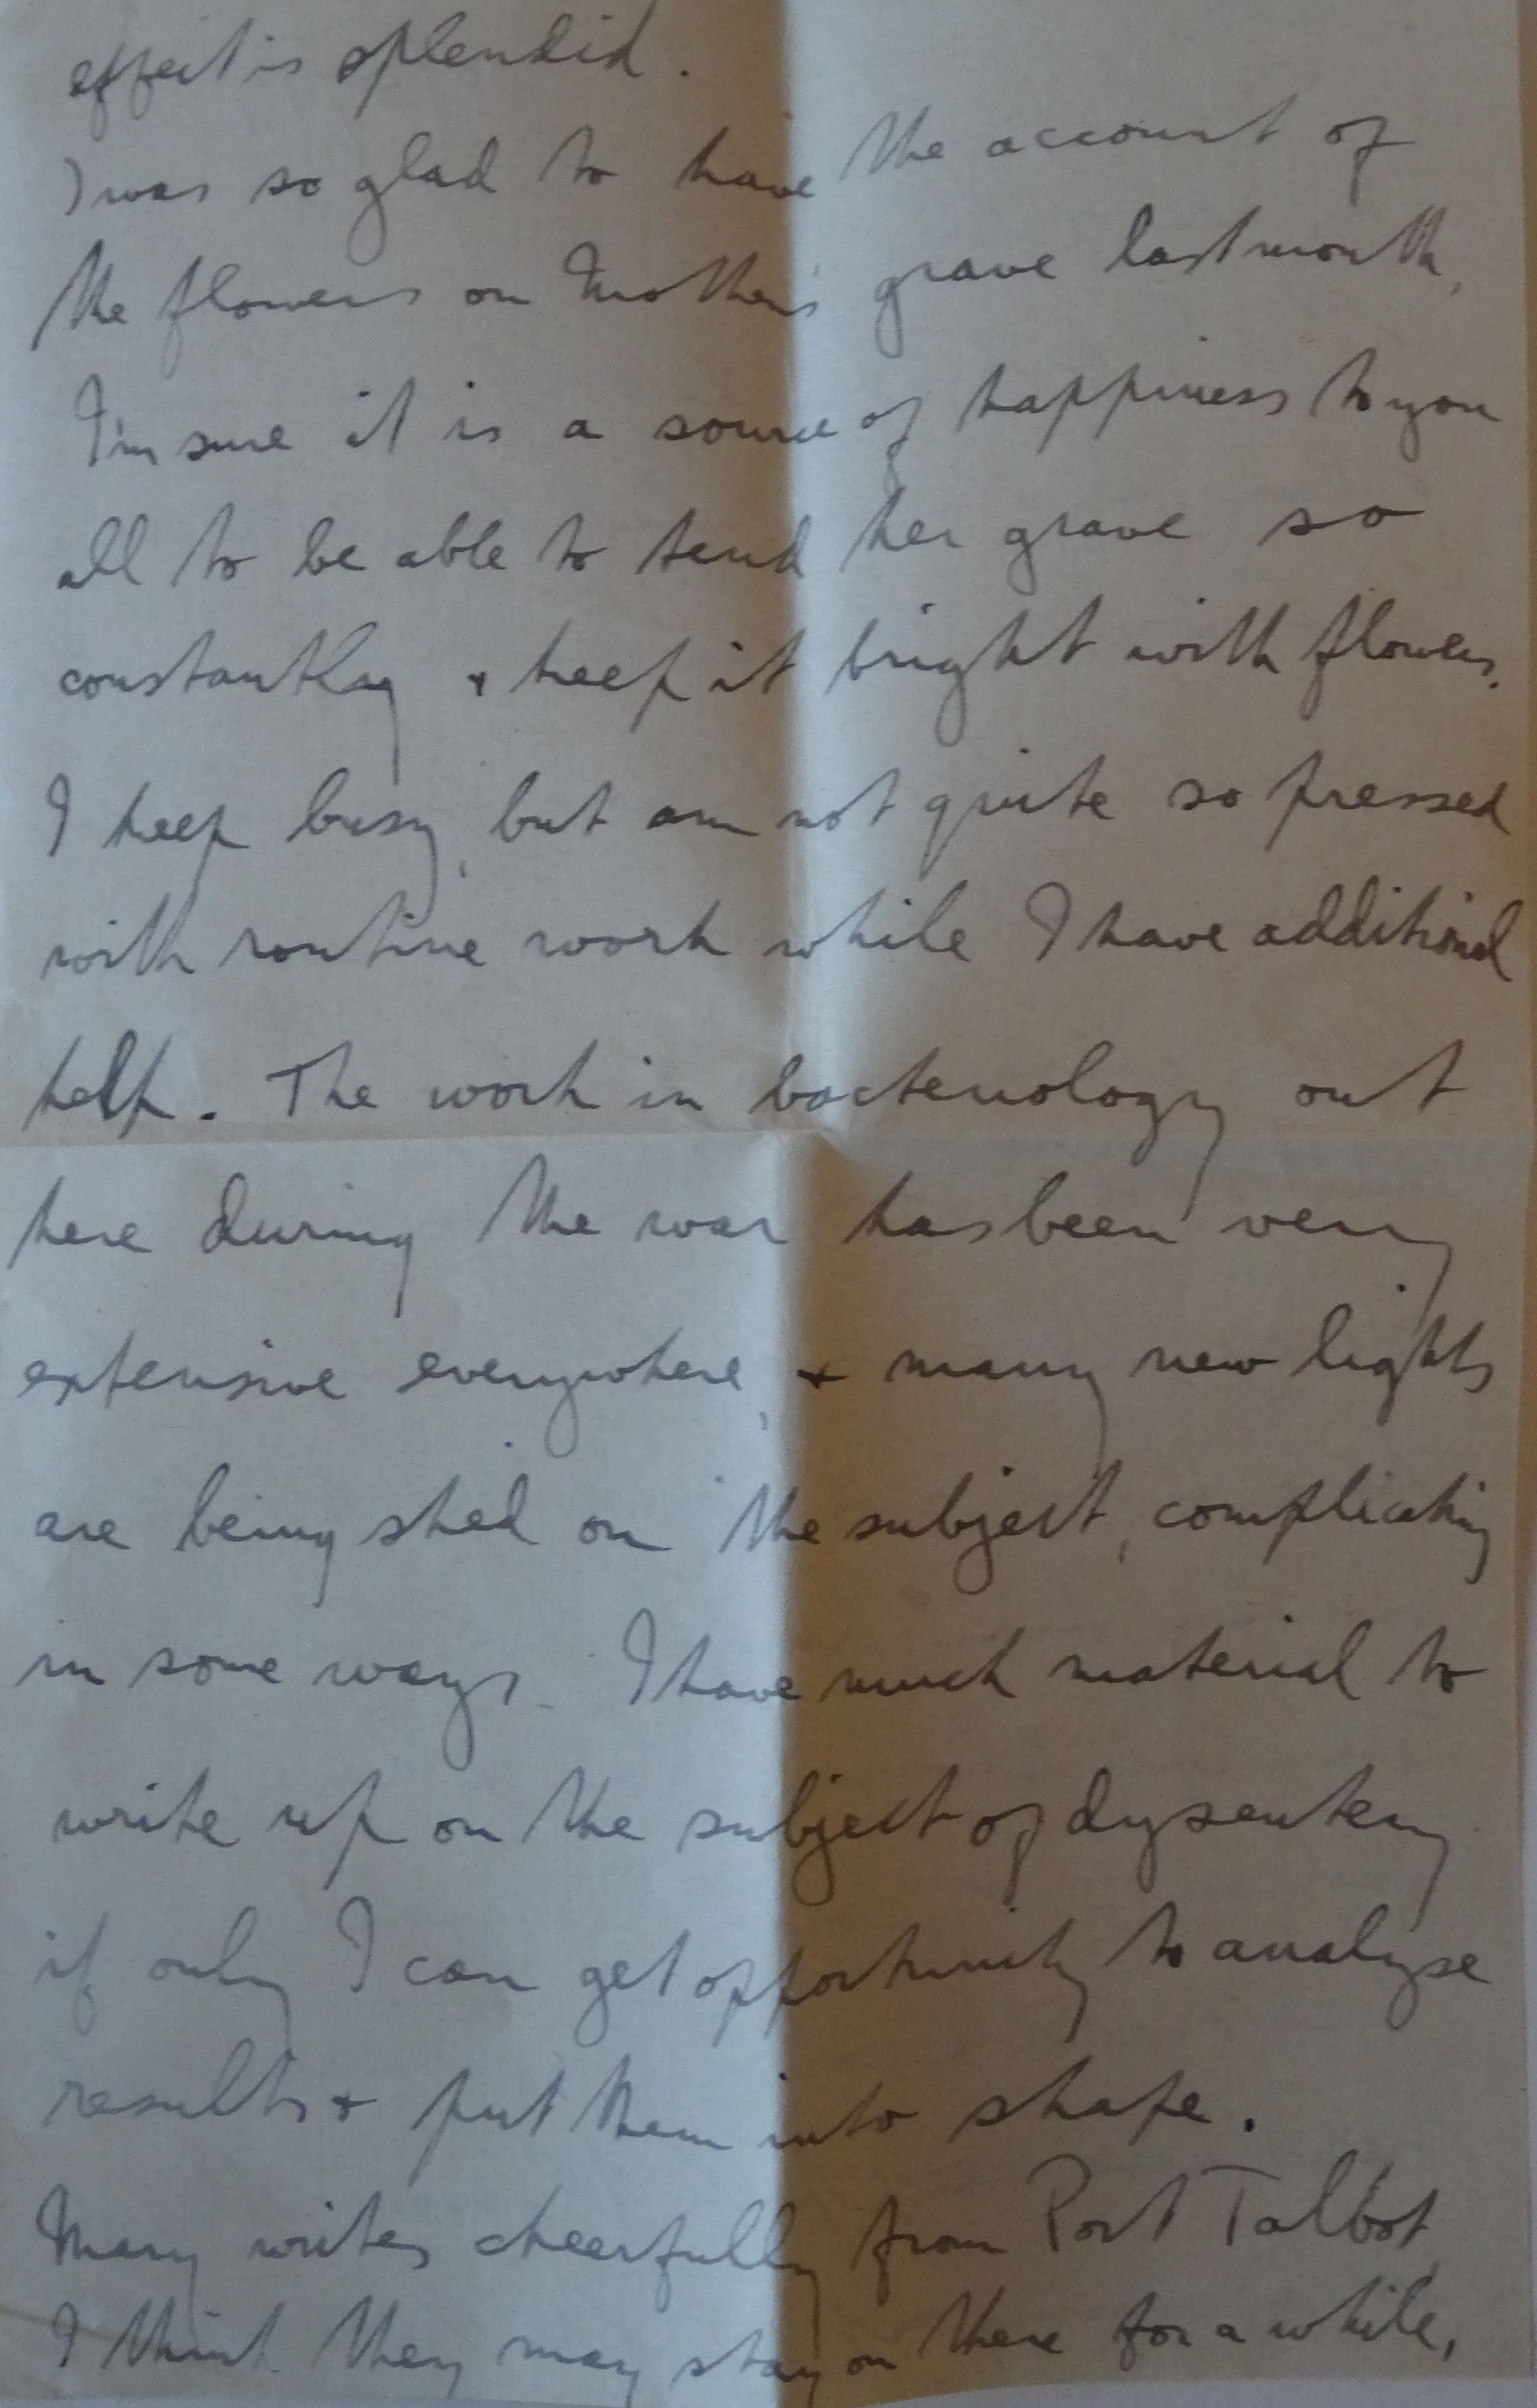 effect is splendid.
I was so glad to have the account of
the flowers on Mother's grave last month,
I'm sure it is a source of happiness to you
all to be able to tend her grave so
constantly & keep it bright with flowers.
I keep busy, but am not quite so pressed
with routine work while I have additional
help. The work in bacteriology out
here during the war has been very
extensive everywhere, & many new lights
are being shed on the subject, complicating
in some ways. I have much material to
write up on the subject of dysentery
if only I can get opportunity to analyse
results & put them into shape.
Mary writes cheerfully from Port Talbot,
I think they may stay on there for a while,